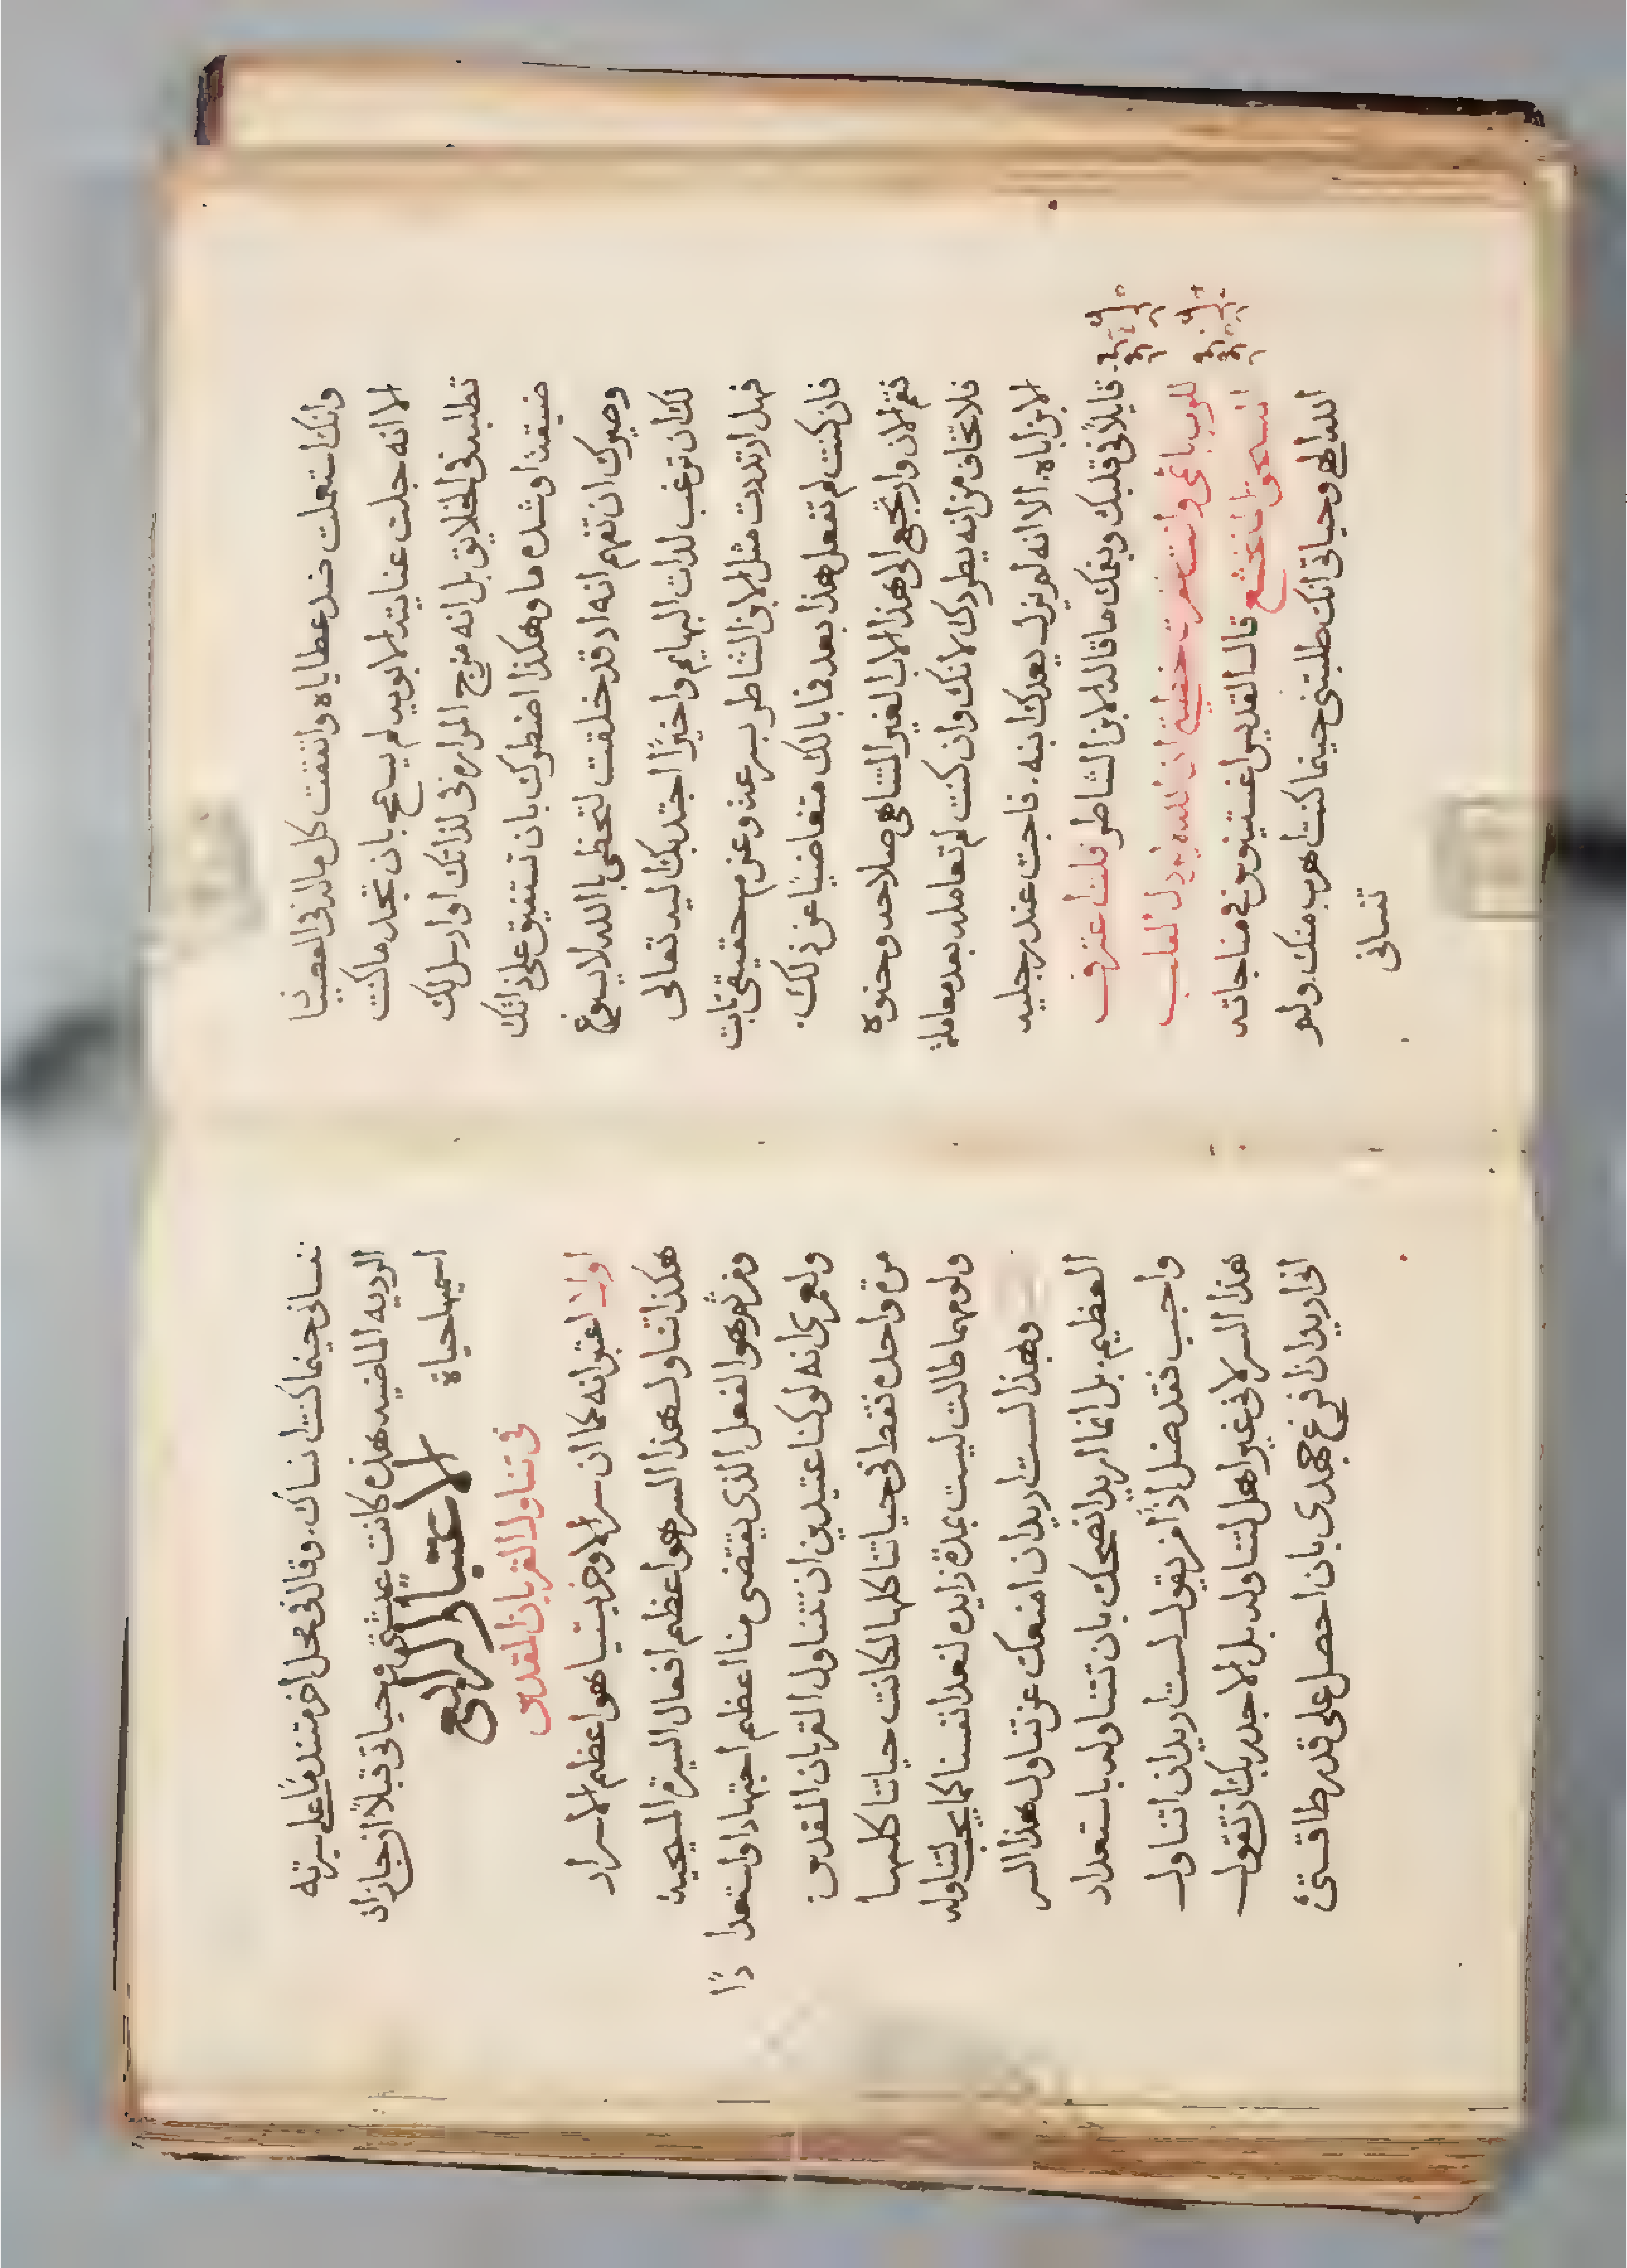 وانك استعملت ضد عطاياه وانفقت كل مالك في العصيان
الا انه جلت عنايته الابويه لم يسمح بان تجد ما كنت
تطلبه في الخلايق بل انه مزج المراير في لذاتك او ارسل لك
ضيقة او شده ما وهكذا اضطرك بان تستفيق على ذاتك
وصيرك ان تفهم انه اذ قد خلقت لتحظى بالله لا يسوغ
لك ان ترغب لذات البهايم واخيرًا اجتذبك اليه تعالى
فهل ارتددت مثل الابن الشاطر بسرعة وعزم حقيقي ثابت
فان كنت لم تفعل هذا بعد فما بالك متغاضيًا عن ذلك.
فقم الان وارتجع الى هذا الاب الغير المتناهي صلاحه وحنوه
فلا تخاف من انه يطردك لانك وان كنت لم تعامله بعد معاملة
الابن اباه. الا انه لم يزل يعدك ابنه. فاجث عند رجليه
قايلاً في قلبك وبفمك ما قاله الابن الشاطر قلت اعترف
للرب باثمي وانت غفرت خطيتي ان الله لا يرذل القلب
المنسحق المتخشع قال القديس اغستينوس في مناجاته
الله الهي وحياتي انك طلبتني حينما كنت اهرب منك. ولم
تنساني
تنساني حينما كنت انساك. وقال في محل اخر متندمًا على سيرته
الرديه الماضيه هذه كانت عيشتي وحياتي قبلاً ان جاز ان
اسميها حياة
الاعتبار الرابع
في تناول القربان المقدس
اولا اعتبر انه كما ان سر الاوخرستيا هو اعظم الاسرار
هكذا تناول هذا السر هو اعظم افعال السيرة المسيحية
ومن ثم هو الفعل الذي يقتضي منا اعظم اجتهاد واستعدادًا
ولعمري انه لو كنا عتيدين ان نتناول القربان المقدس
مرة واحده فقط في حياتنا كلها لكانت حياتنا كلها
ولو مهما طالت ليست بمدة زايده لنعد انفسنا كما يجب لتناوله
وبهذا لست اريد ان امنعك عن تناول هذا السر
العظيم. بل انما اريد انصحك بان تتناوله باستعداد
واجب فقد ضل اذًا من يقول لست اريد ان اتناول
هذا السر لاني غير اهل لتناوله بل الاجدر بك ان تقول
اني اريد ان افرغ جهدي بان احصل على قدر طاقتي